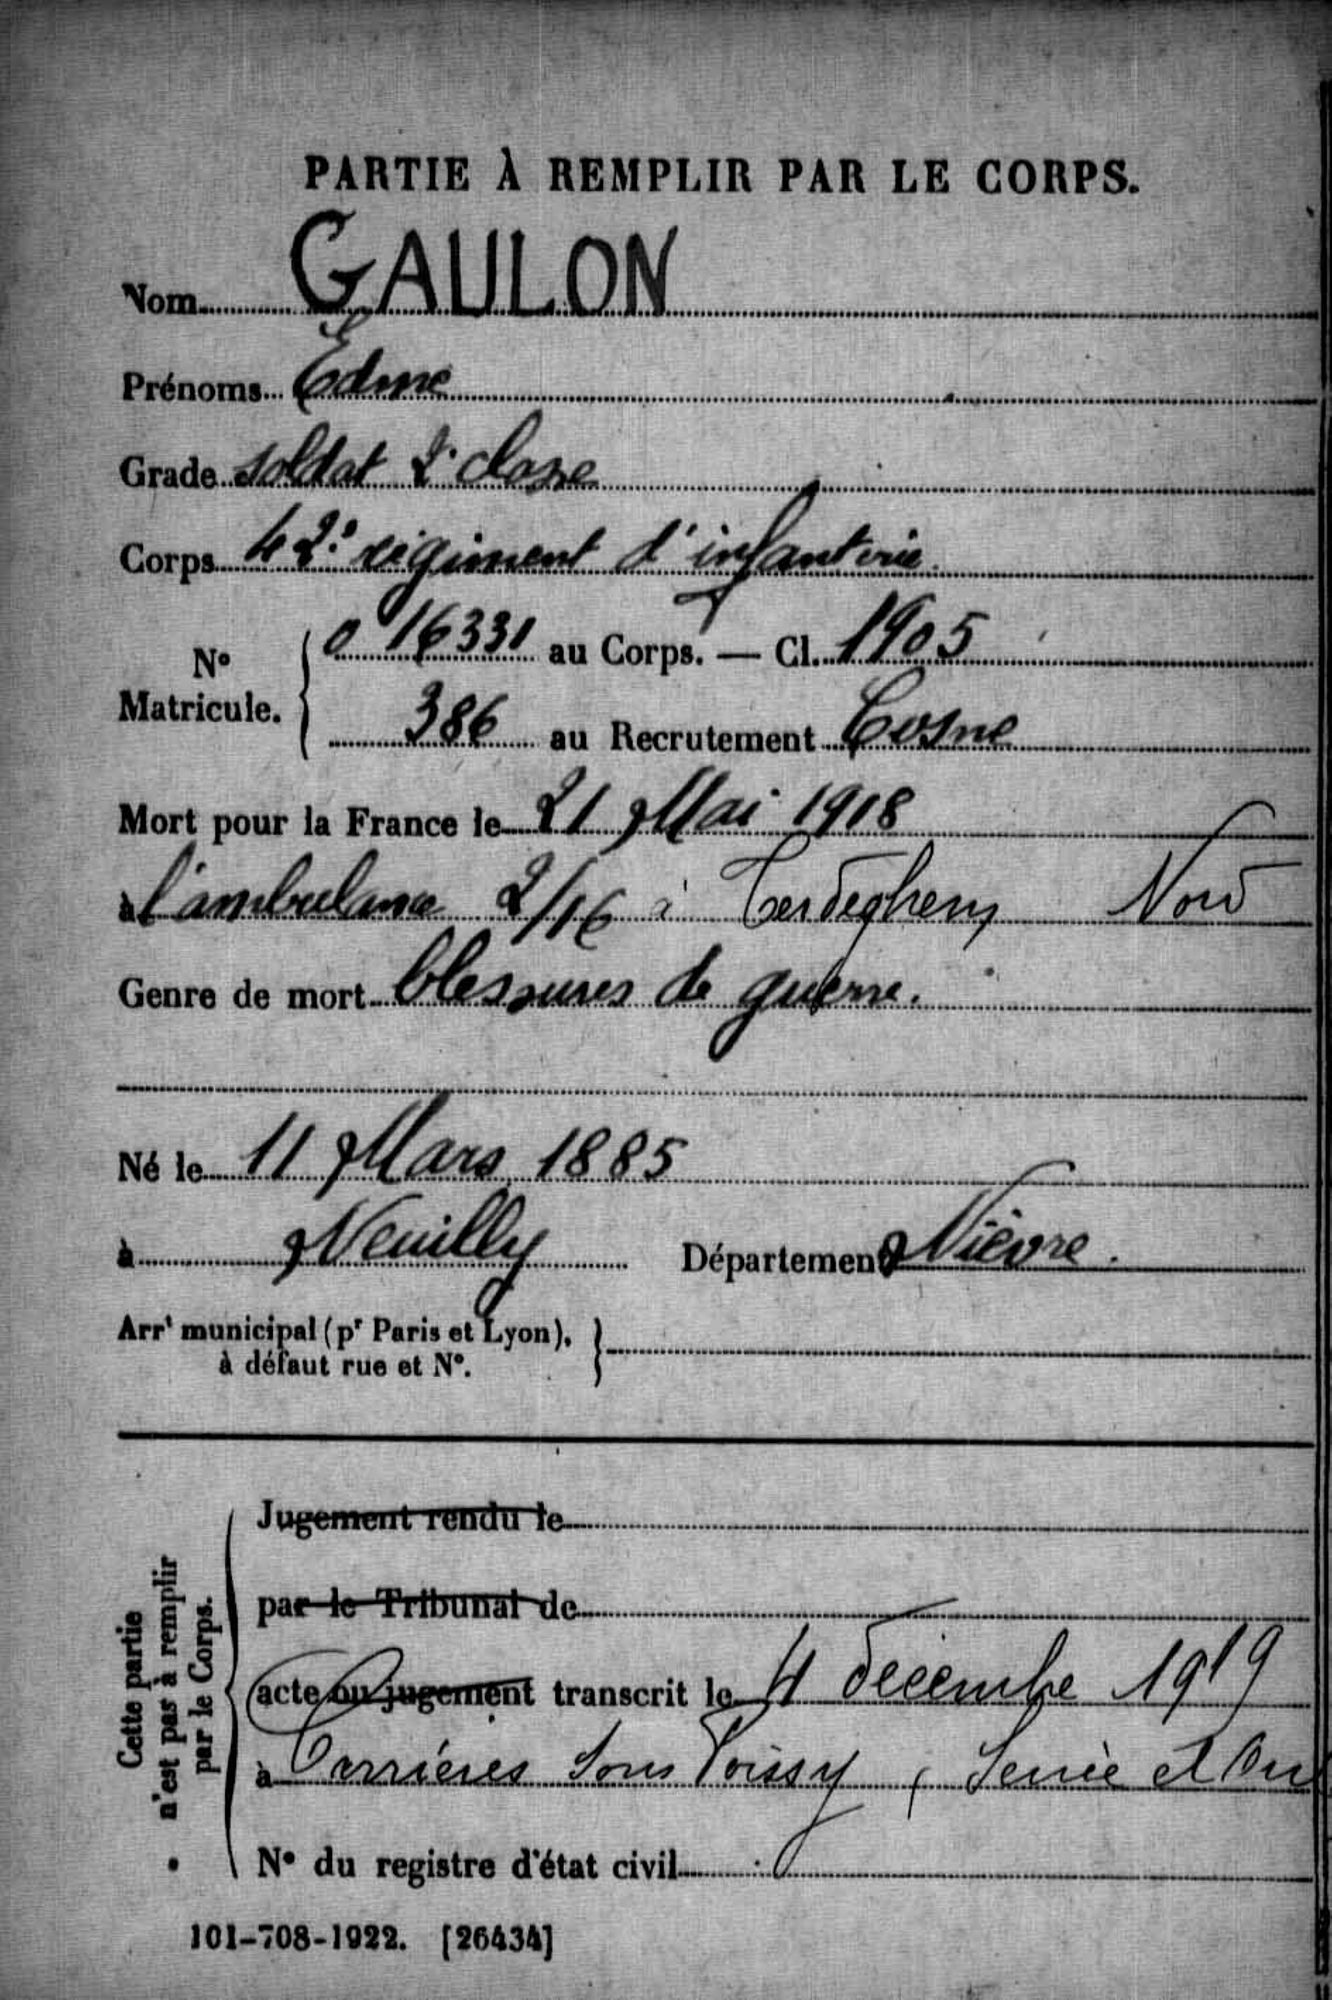 PARTIE À REMPLIR PAR LE CORPS.
Nom GAULON
Prénoms Edme
Grade soldat 2e classe
Corps 42e régiment d'infanterie.
N° Matricule. 0 16331 au Corps. — Cl. 1905
386 au Recrutement Cosne
Mort pour la France le 21 Mai 1918
à l'ambulance 2/16 à Terdeghem Nord
Genre de mort blessures de guerre.
Né le 11 Mars 1885
à Neuilly Département Nièvre.
Arrt municipal (pr Paris et Lyon),
à défaut rue et N°.
Cette partie
n'est pas à remplir
par le Corps.
Jugement rendu le
par le Tribunal de
acte ou jugement transcrit le 4 décembre 1919
à Carrières sous Poissy, Seine et Oise
N° du registre d'état civil
101-708-1922. [26434]